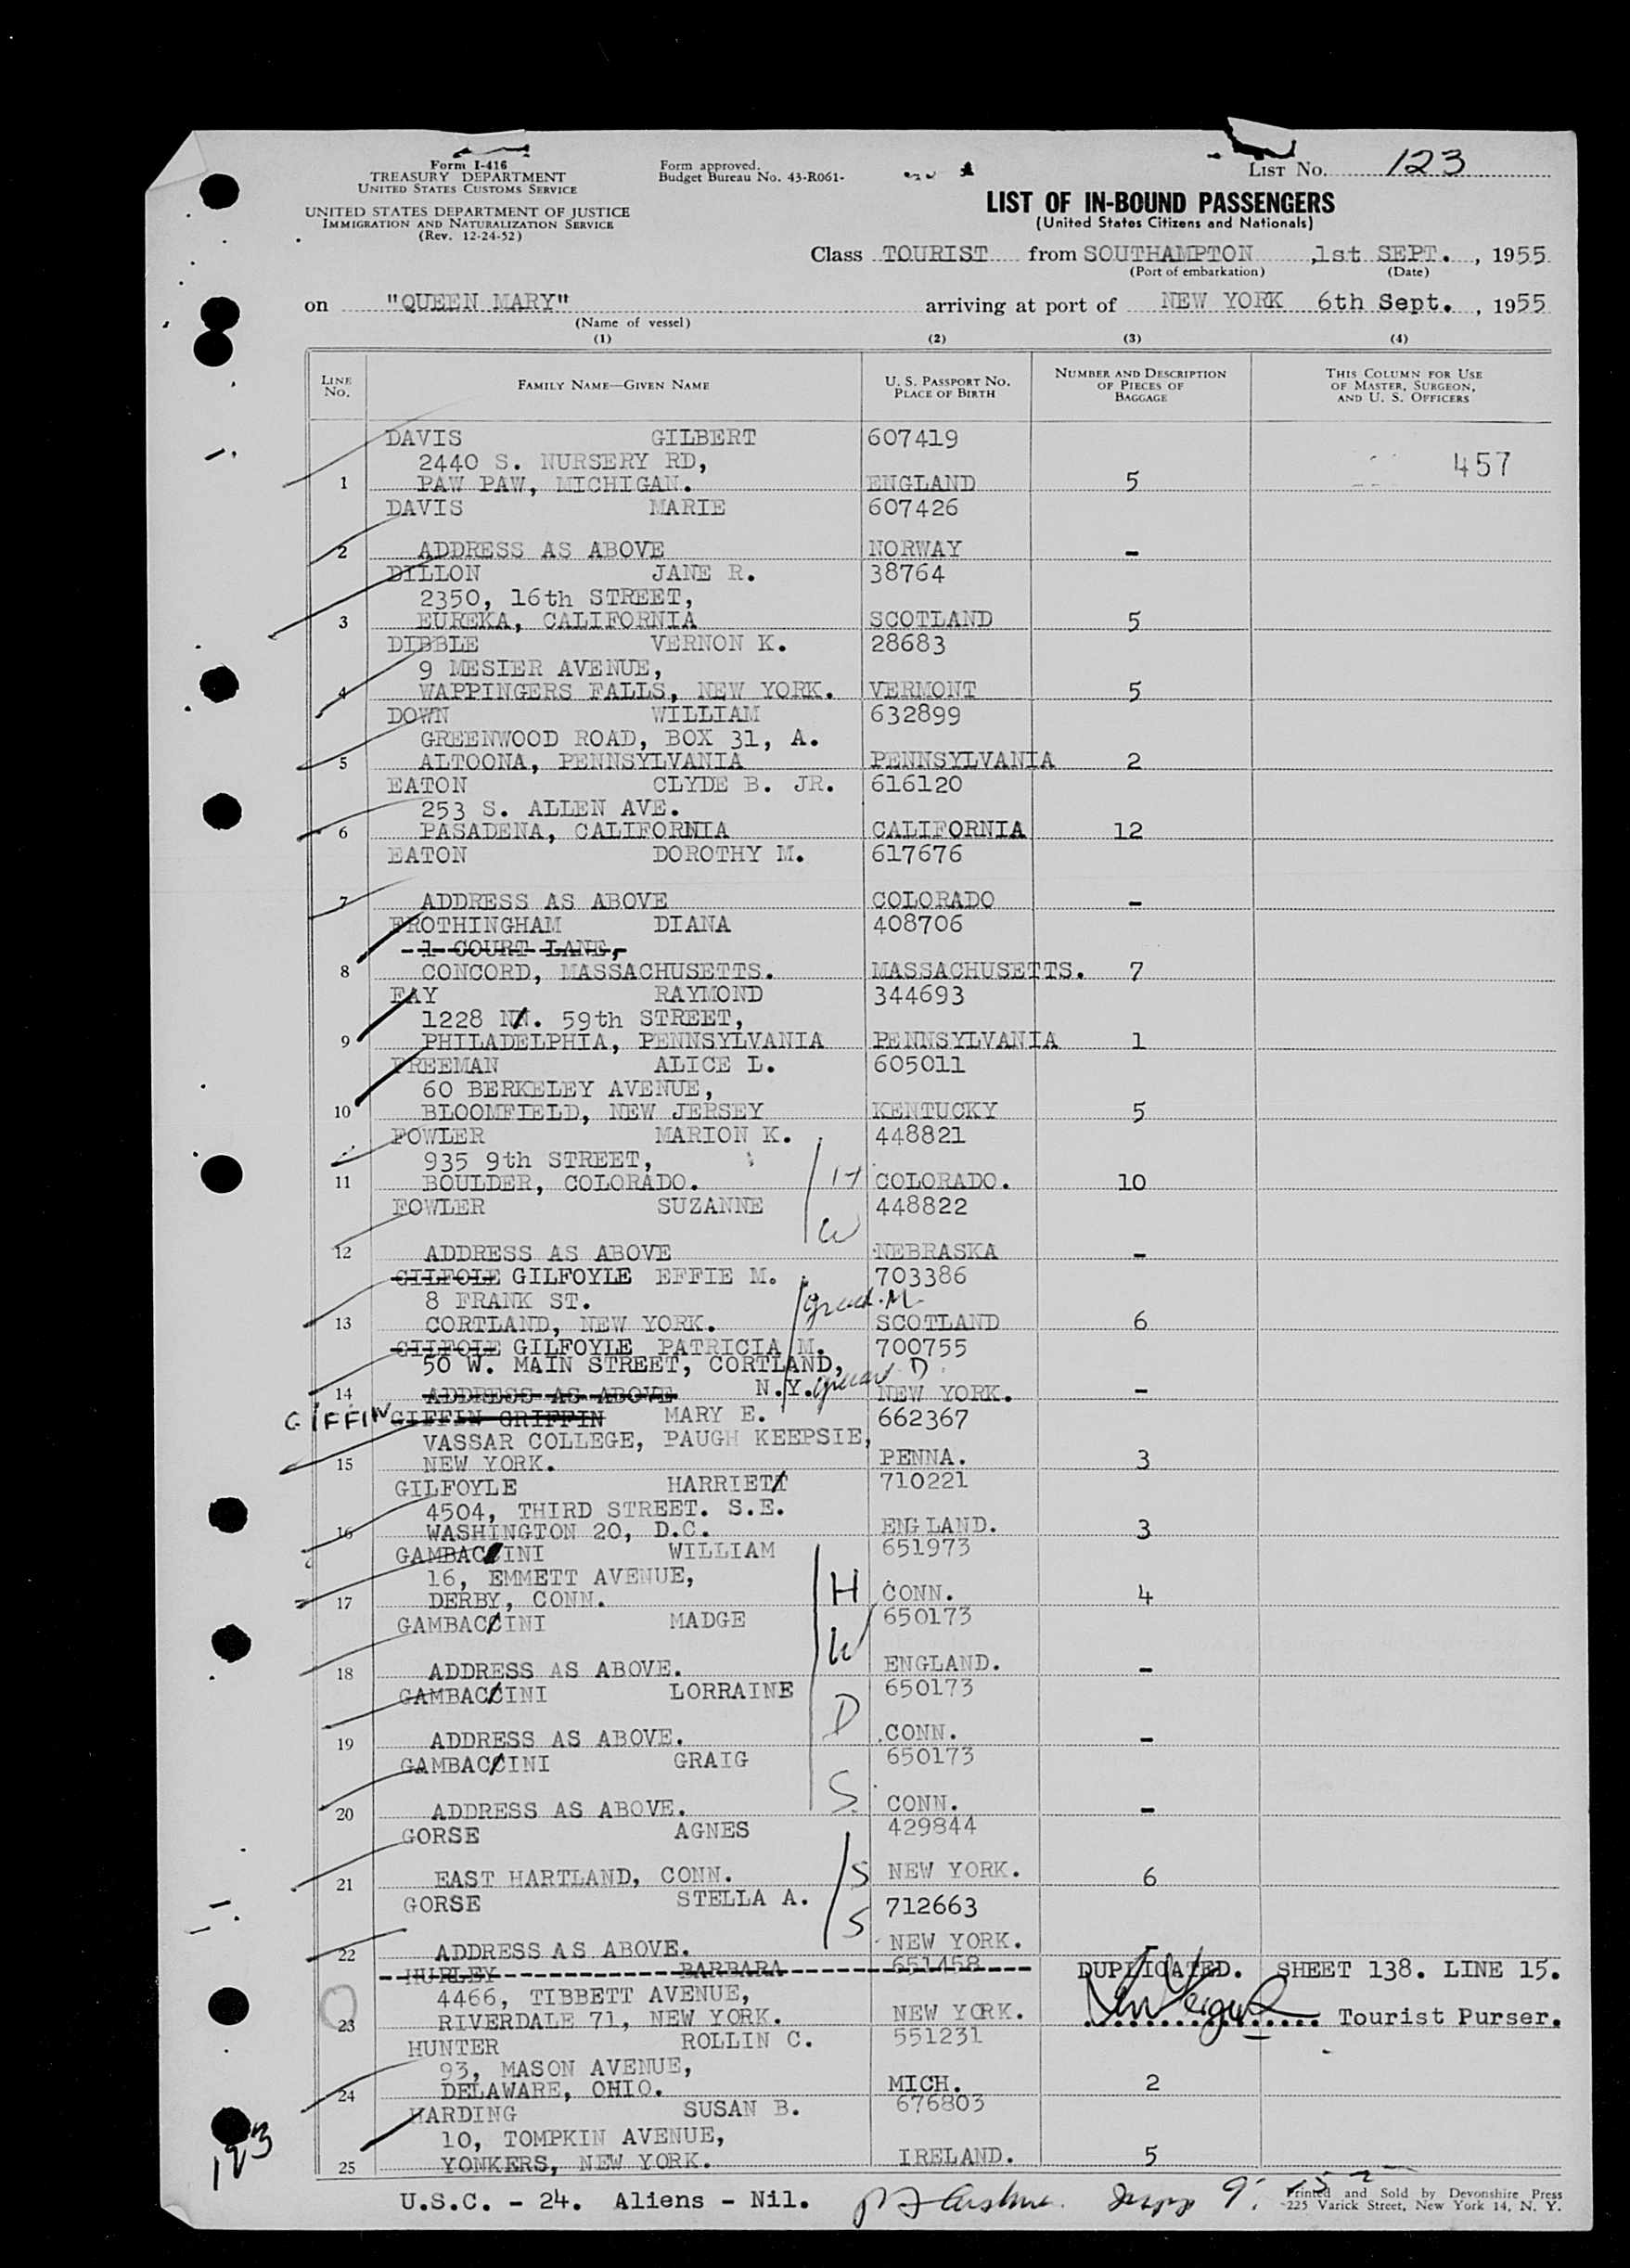 Form I-416
TREASURY DEPARTMENT
UNITED STATES CUSTOMS SERVICE
UNITED STATES DEPARTMENT OF JUSTICE
IMMIGRATION AND NATURALIZATION SERVICE
(Rev. 12-24-52)
Form approved.
Budget Bureau No. 43-R061-
LIST No. 123
LIST OF IN-BOUND PASSENGERS
(United States Citizens and Nationals)
Class TOURIST from SOUTHAMPTON ,1st SEPT. , 1955
(Port of embarkation) (Date)
on "QUEEN MARY" arriving at port of NEW YORK 6th Sept. , 1955
(Name of vessel)
(1) (2) (3) (4)
LINE No. FAMILY NAME—GIVEN NAME U. S. PASSPORT NO. PLACE OF BIRTH NUMBER AND DESCRIPTION OF PIECES OF BAGGAGE THIS COLUMN FOR USE OF MASTER, SURGEON, AND U. S. OFFICERS
DAVIS GILBERT 607419
2440 S. NURSERY RD, 457
1 PAW PAW, MICHIGAN. ENGLAND 5
DAVIS MARIE 607426
2 ADDRESS AS ABOVE NORWAY -
DILLON JANE R. 38764
2350, 16th STREET,
3 EUREKA, CALIFORNIA SCOTLAND 5
DIBBLE VERNON K. 28683
9 MESIER AVENUE,
4 WAPPINGERS FALLS, NEW YORK. VERMONT 5
DOWN WILLIAM 632899
GREENWOOD ROAD, BOX 31, A.
5 ALTOONA, PENNSYLVANIA PENNSYLVANIA 2
EATON CLYDE B. JR. 616120
253 S. ALLEN AVE.
6 PASADENA, CALIFORNIA CALIFORNIA 12
EATON DOROTHY M. 617676
7 ADDRESS AS ABOVE COLORADO -
FROTHINGHAM DIANA 408706
1 COURT LANE,
8 CONCORD, MASSACHUSETTS. MASSACHUSETTS. 7
FAY RAYMOND 344693
1228 N. 59th STREET,
9 PHILADELPHIA, PENNSYLVANIA PENNSYLVANIA 1
FREEMAN ALICE L. 605011
60 BERKELEY AVENUE,
10 BLOOMFIELD, NEW JERSEY KENTUCKY 5
FOWLER MARION K. 448821
935 9th STREET,
11 BOULDER, COLORADO. H COLORADO. 10
FOWLER SUZANNE 448822
W
12 ADDRESS AS ABOVE NEBRASKA -
GILFOLE GILFOYLE EFFIE M. 703386
8 FRANK ST. Grand.M.
13 CORTLAND, NEW YORK. SCOTLAND 6
GILFOLE GILFOYLE PATRICIA M. 700755
50 W. MAIN STREET, CORTLAND,
14 ADDRESS AS ABOVE N.Y. Grand D. NEW YORK. -
GIFFIN GIFFIN GRIFFIN MARY E. 662367
VASSAR COLLEGE, PAUGH KEEPSIE,
15 NEW YORK. PENNA. 3
GILFOYLE HARRIET 710221
4504, THIRD STREET. S.E.
16 WASHINGTON 20, D.C. ENGLAND. 3
GAMBACCINI WILLIAM 651973
16, EMMETT AVENUE,
17 DERBY, CONN. H CONN. 4
GAMBACCINI MADGE 650173
W
18 ADDRESS AS ABOVE. ENGLAND. -
GAMBACCINI LORRAINE 650173
D
19 ADDRESS AS ABOVE. CONN. -
GAMBACCINI GRAIG 650173
S.
20 ADDRESS AS ABOVE. CONN. -
GORSE AGNES 429844
21 EAST HARTLAND, CONN. S NEW YORK. 6
GORSE STELLA A. 712663
S
22 ADDRESS AS ABOVE. NEW YORK. -
HURLEY BARBARA 651458 DUPLICATED. SHEET 138. LINE 15.
4466, TIBBETT AVENUE,
23 RIVERDALE 71, NEW YORK. NEW YORK. Tourist Purser.
HUNTER ROLLIN C. 551231
93, MASON AVENUE,
24 DELAWARE, OHIO. MICH. 2
HARDING SUSAN B. 676803
10, TOMPKIN AVENUE,
25 YONKERS, NEW YORK. IRELAND. 5
123
U.S.C. - 24. Aliens - Nil.
Printed and Sold by Devonshire Press
225 Varick Street, New York 14, N. Y.